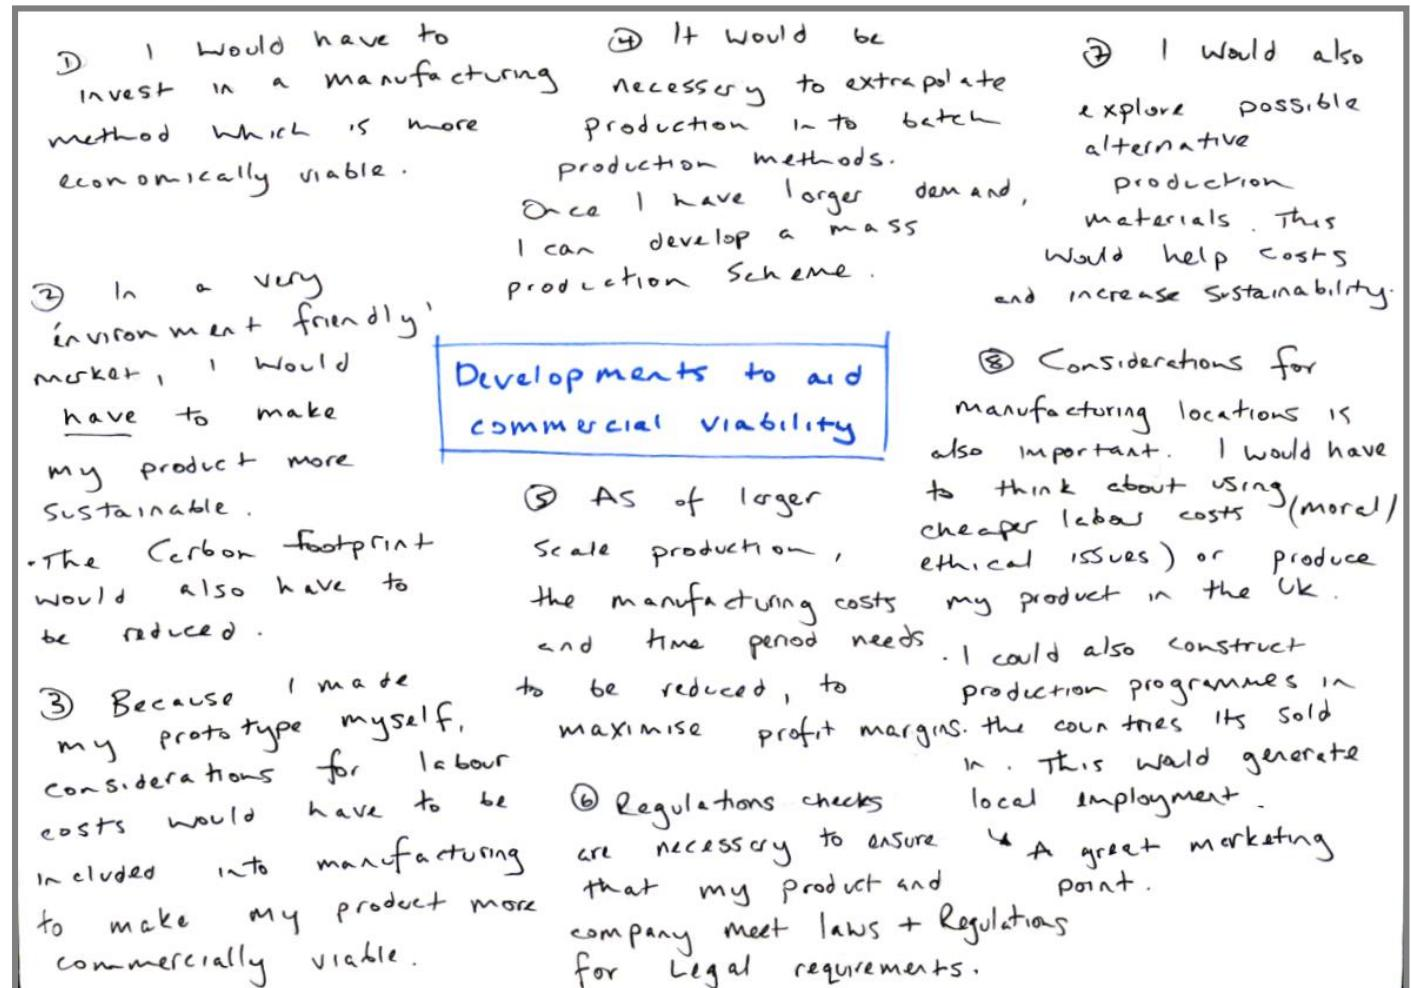 ① I would have to
invest in a manufacturing
method which is more
economically viable.
② In a very
'environment friendly'
market, I would
have to make
my product more
sustainable.
• The Carbon footprint
would also have to
be reduced.
③ Because I made
my prototype myself,
considerations for labour
costs would have to be
included into manufacturing
to make my product more
commercially viable.
④ It would be
necessary to extrapolate
production in to batch
production methods.
Once I have larger demand,
I can develop a mass
production scheme.
Developments to aid
commercial viability
⑤ As of larger
scale production,
the manufacturing costs
and time period needs
to be reduced, to
maximise profit margins.
⑥ Regulations checks
are necessary to ensure
that my product and
company meet laws + Regulations
for Legal requirements.
⑦ I would also
explore possible
alternative
production
materials. This
would help costs
and increase sustainability.
⑧ Considerations for
manufacturing locations is
also important. I would have
to think about using
cheaper labour costs (moral/
ethical issues) or produce
my product in the UK.
• I could also construct
production programmes in
the countries its sold
in. This would generate
local employment.
↳ A great marketing
point.